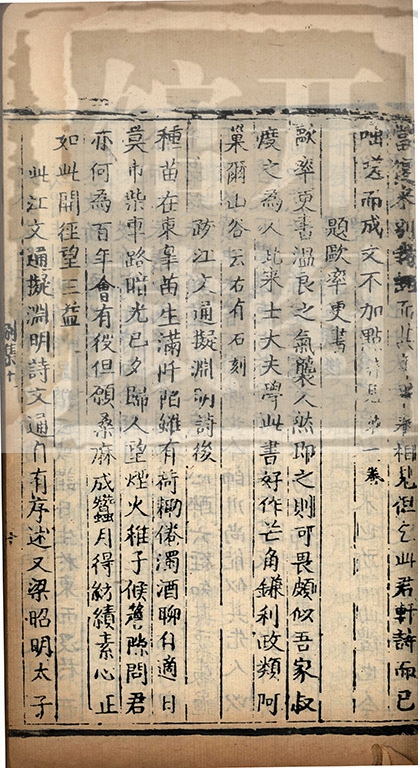 當復來別我
相見但乞此君軒詩而已
咄嗟而成文不加點 卷
題歐率更書
歐率更書溫良之氣襲人然即之則可畏頗似吾家叔
度之為人比來士大夫學此書好作芒角鎌利政類阿
巢爾山谷云右有石刻
跋江文通擬淵明詩後
種苗在東皐苗生滿阡陌雖有荷鋤倦濁酒聊自適日
莫巾柴車路暗光已夕歸人望煙火稚子候簷隙問君
亦何為百年會有役但願桑麻成蠶月得紡績素心正
如此開徑望三益
此江文通擬淵明詩文通自有序述又梁昭明太子
別集十